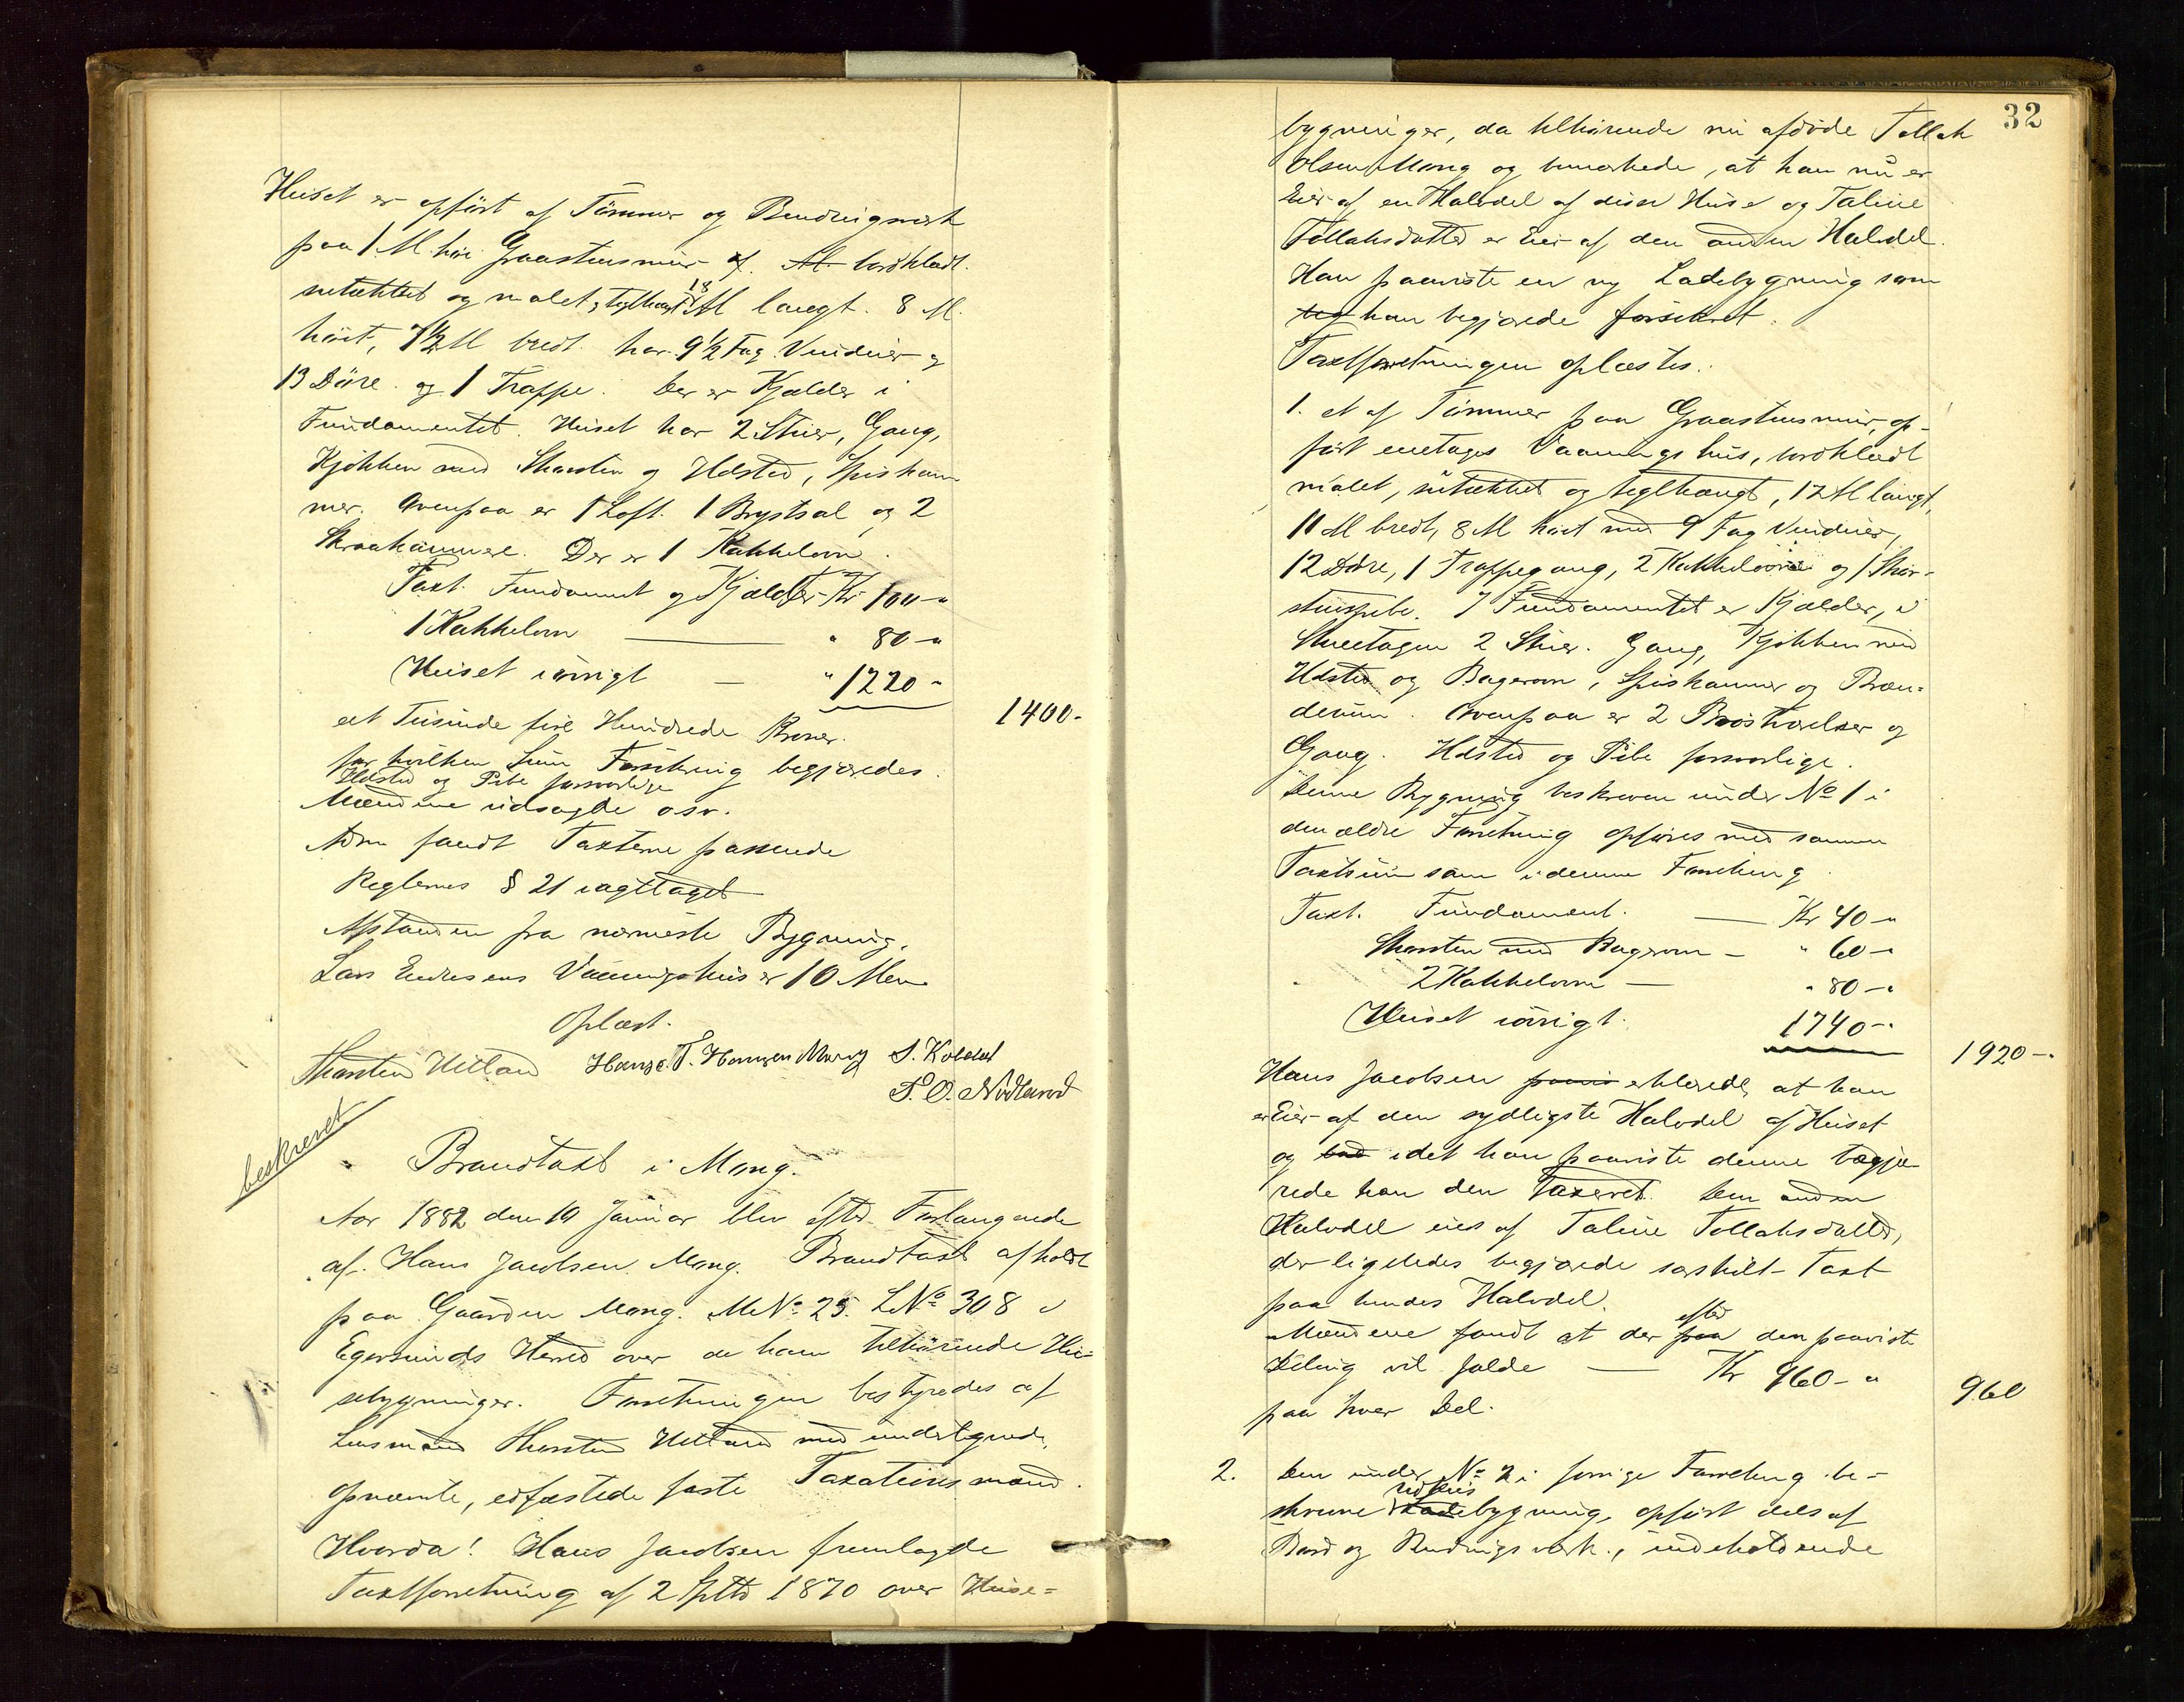 Huset er opført af Tømmer og Bindingsverk
paa 1 Al. høi Graastensmur af. Al. bordklædt.
uetækket og malet, Teglhængt 18 Al langt. 8 Al.
høit, 7½ Al bredt. har 9½ Fag Vinduer og
13 Døre. og 1 Trappe. Der er Kjælder i
Fundamentet. Huset har 2 Stuer, Gang,
Kjøkken med Skorsten og Ildsted, Spiskam
mer. Ovenpaa er 1 Loft. 1 Brystsal og 2
Skraakammere. Der er 1 Kakkelovn.
Taxt. Fundament og Kjælder Kr 100-"
1 Kakkelovn " 80-"
Huset iørrigt — " 1220-
1400-
et Tusinde fire Hundrede Kroner.
for hvilken Sum Forsikring begjæredes.
Ildsted og Pibe forsvarlige
Mændene udsagde osv.
fandt Taxterne passende
Reglernes § 21 iagttaget
Afstanden fra nærmeste Bygning.
Lars Endresens Vaaningshus er 10 Alen
Oplæst.
Thorsten Hetland Hans T. Hansen Mong S. Koldal
T. O. Nodland
beskrevet
Brandtaxt i Mong.
Aar 1882 den 10 Januar blev efter Forlangende
af. Hans Jacobsen Mong. Brandtaxt afholdt
paa Gaarden Mong. M№ 25. L№ 308 i
Egersunds Herred over de ham tilhørende Hu=
sebygninger. Forretningen bestyredes af
Lensmand Thorsten Hetland med undertegnede,
opnævnte, edfæstede faste Taxationsmænd.
Hvorda! Hans Jacobsen fremlagde
Taxtforretning af 2 Septbr 1870 over Huse=
32
bygninger, da tilhørende nu afdøde Tollak
Olsen Mong og bemærkede, at han nu er
Eier af en Halvdel af disse Huse og Taline
Tollaksdatter er Eier af den anden Halvdel.
Han paaviste en ny Ladebygning som
beg han begjærede forsikret.
Taxtforretningen oplæstes.
1. et af Tømmer paa Graastensmur, op-
ført eenetages Vaaningshus, bordklædt
malet, uetækket og teglhængt, 12 Al langt,
11 Al bredt, 8 Al høit med 9 Fag Vinduer,
12 Døre, 1 Trappegang, 2 Kakkelovne og 1 Skor-
stenspibe. I Fundamentet er Kjælder, i
Stueetagen 2 Stuer. Gang, Kjøkken med
Ildsted og Bagerovn, Spiskammer og Bræn-
derum. Ovenpaa er 2 Brøstværelser og
Gang. Ildsted og Pibe forsvarlige.
Denne Bygning beskreven under № 1 i
den ældre Forretning opføres med samme
Taxtsum som i denne Forretning
Taxt. Fundament. — Kr 40-"
Skorsten med Bagerovn — " 60-"
2 Kakkelovne — " 80-"
Huset iørrigt. 1740-"
1920-.
Hans Jacobsen erklærede, at han
er Eier af den sydligste Halvdel af Huset
og idet han paaviste denne begjæ
rede han den taxeret. Den anden
Halvdel eies af Taline Tollaksdatter,
der ligeledes begjærede særskilt Taxt
paa hendes Halvdel.
Mændene fandt at der efter den paaviste
Deling vil falde — Kr 960-"
960
paa hver Del.
2. Den under № 2 i forrige Forretning be-
skrevne Udhusbygning, opført dels af
Bord og Bindingsverk., indeholdende